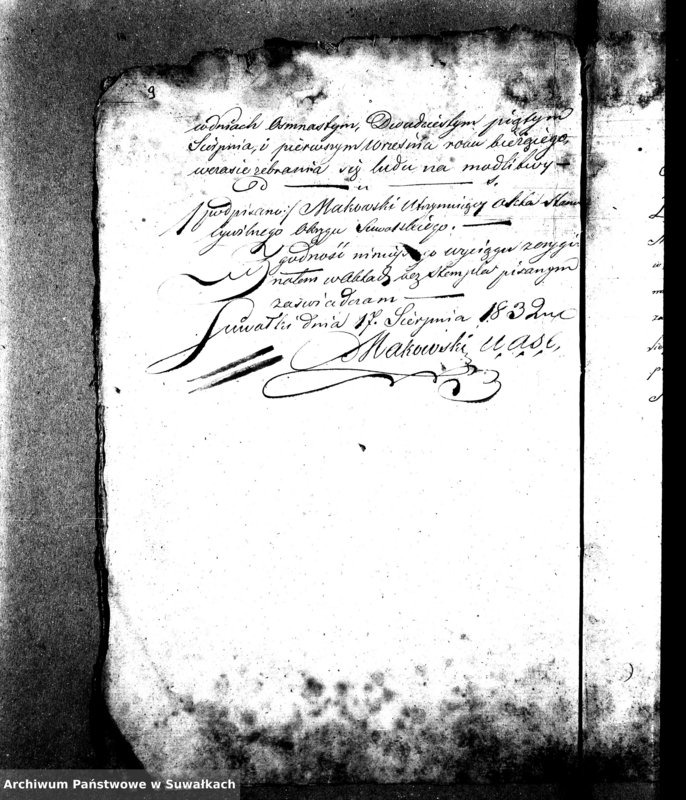 9
wdniach Osmnastym, Dwudziestym piątym
Sierpnia, i pierwszym Września roku bieżącego,
wczasie zebrania się ludu na modlitwy —
podpisano:/ Makowski Utrzymuiący Akta Stanu
Cywilnego Okręgu Suwalskiego. —
Zgodność niniejszego wyciągu zorygi
nałem wAktach bez stempla pisanym
zaświadczam —
Suwałki dnia 17. Sierpnia 1832
Makowski, U. A. S. C.
Archiwum Państwowe w Suwałkach